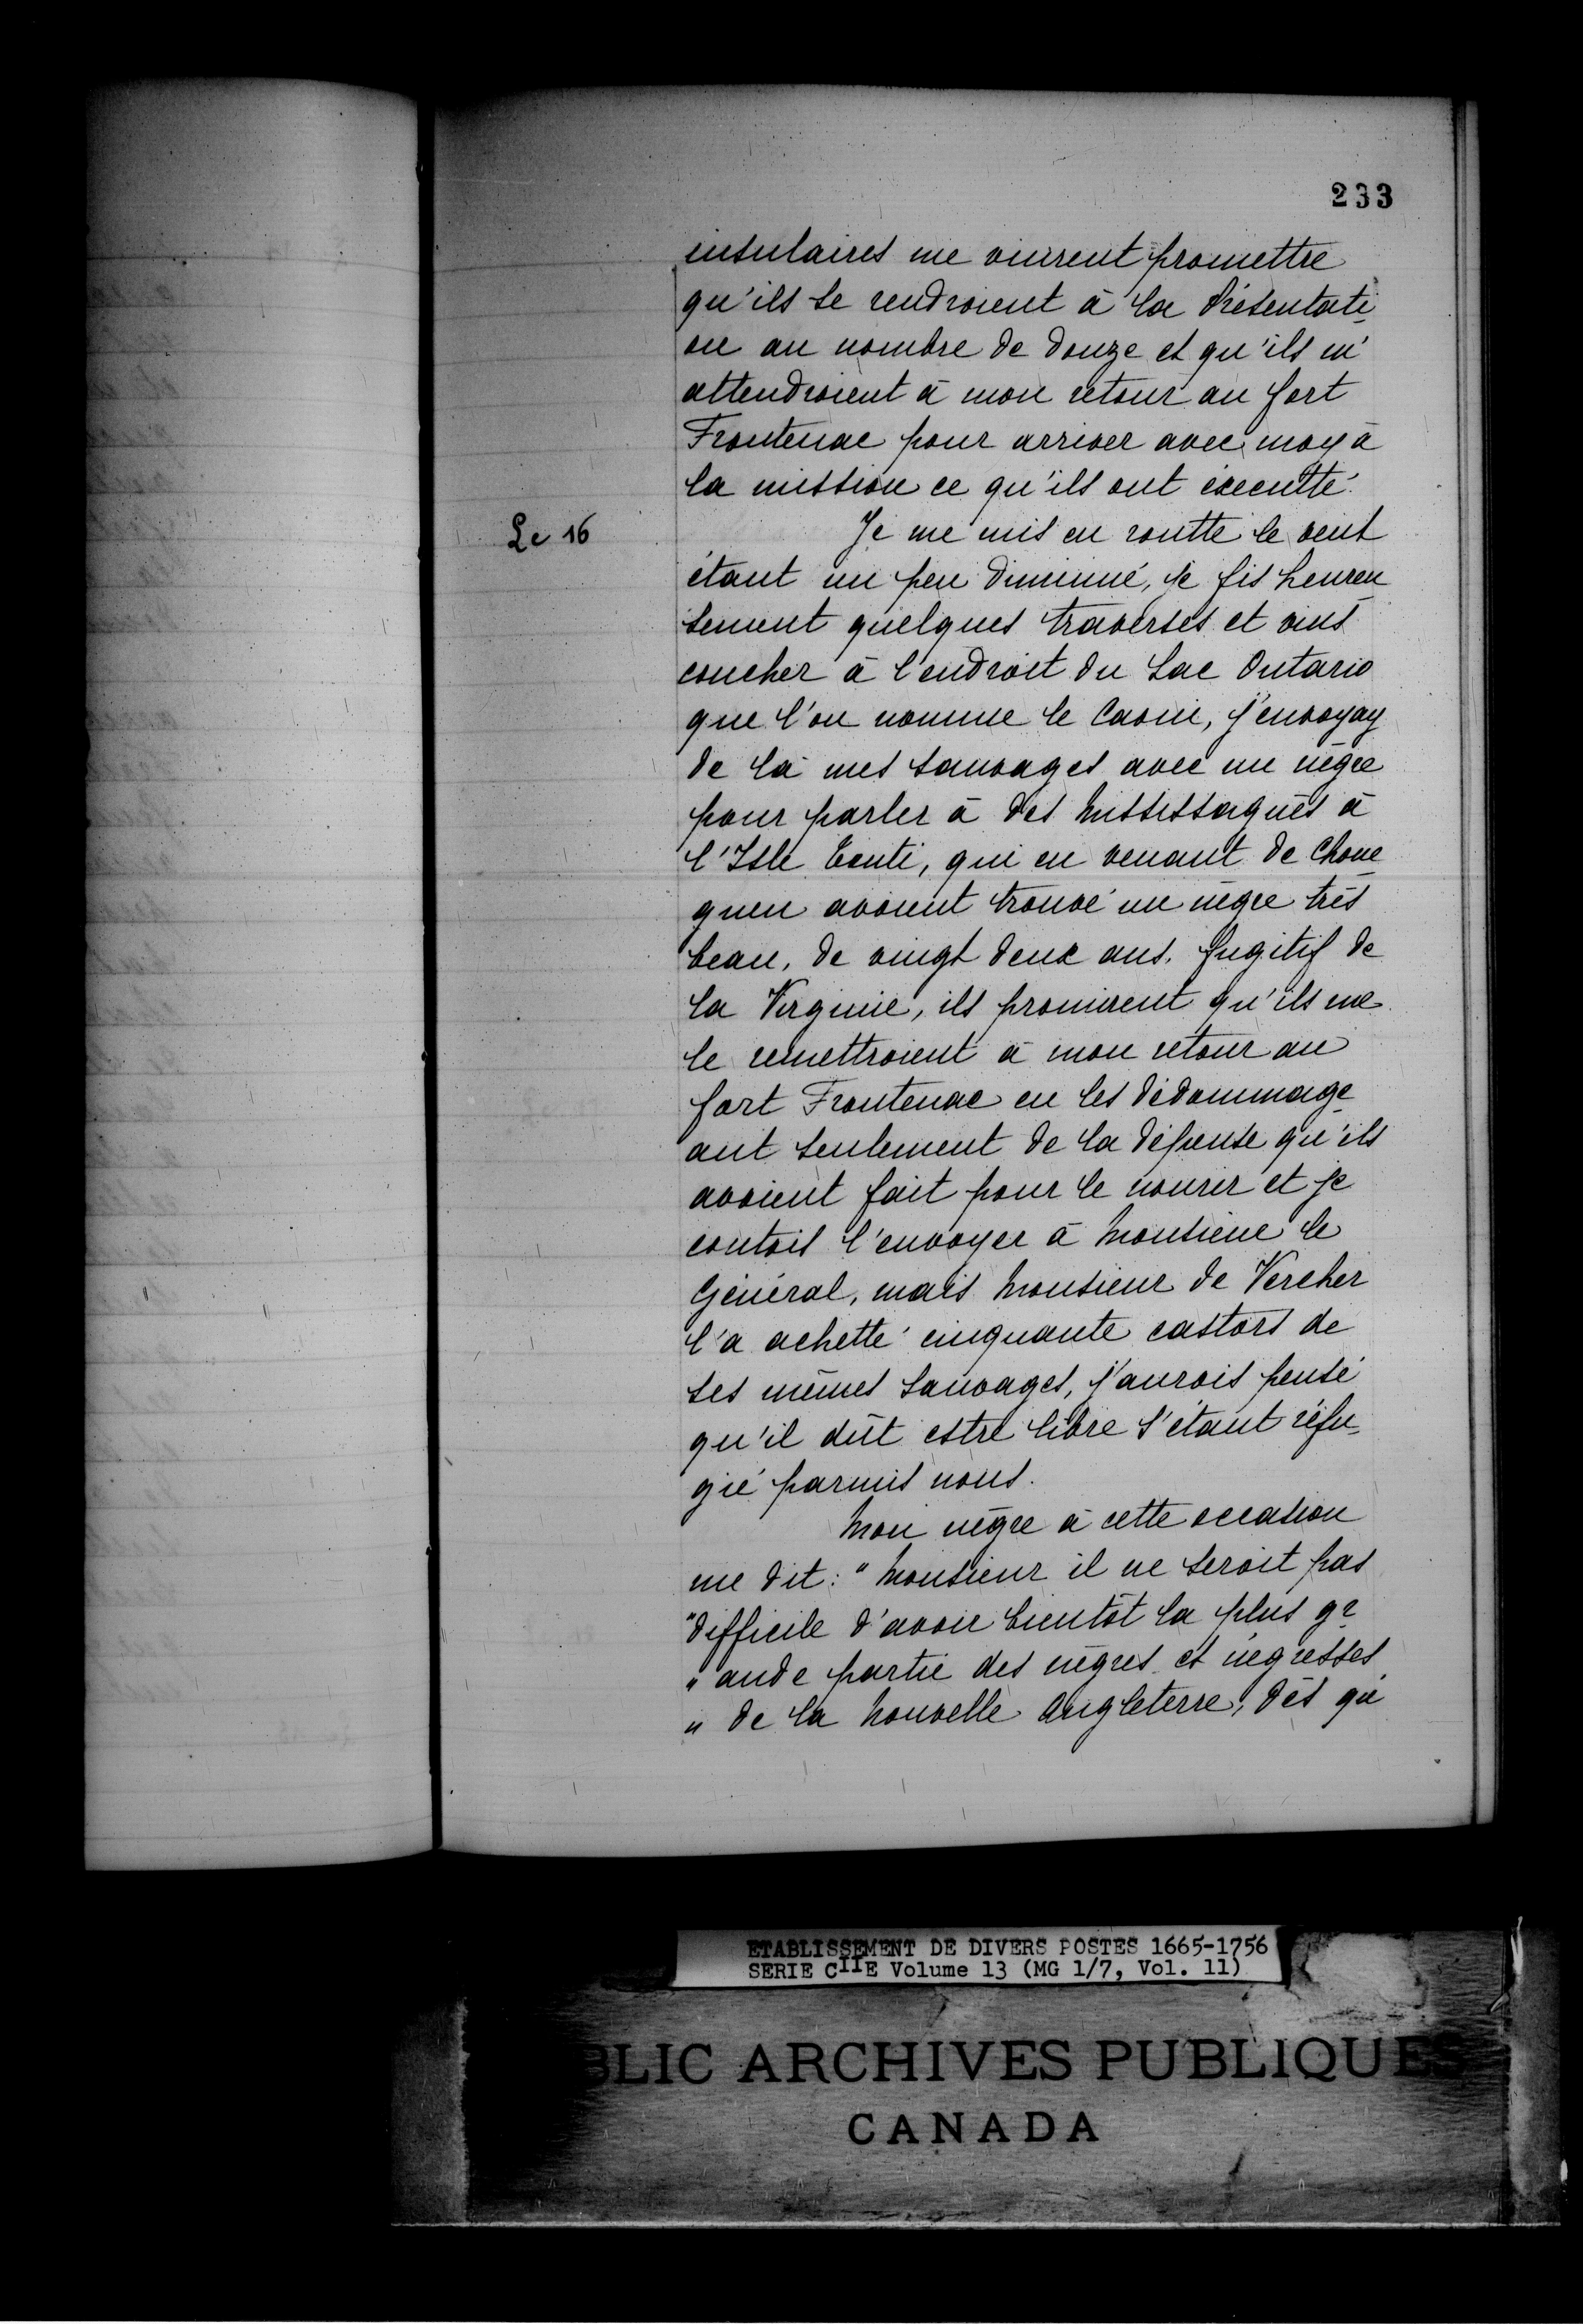 233
insulaires me vinrent promettre
qu'ils se rendroient à la Présentati-
on au nombre de douze et qu'ils m'
attendroient à mon retour au fort
Frontenac pour arriver avec moy à
la mission ce qu'ils ont éxecutté.
Le 16
Je me mis en routte le vent
étant un peu diminué, je fis heureu
sement quelques traverses et vins
coucher à l'endroit du Lac Ontario
que l'on nomme le Caoui, j'envoyay
de là mes sauvages avec un nègre
pour parler à des Mississagués à
l'Isle Tonti, qui en venant de Choue-
guen avoient trouvé un nègre très
beau, de vingt deux ans, fugitif de
la Virginie, ils promirent qu'ils me
le remettroient à mon retour au
fort Frontenac en les dédommage-
ant seulement de la dépense qu'ils
avoient fait pour le nourir et je
contois l'envoyer à Monsieur le
Général, mais Monsieur de Vercher
l'a achetté cinquante castors de
ses mêmes Sauvages, j'aurois pensé
qu'il dût estre libre s'étant réfu-
gié parmis nous.
Mon nègre à cette occasion
me dit: "Monsieur il ne seroit pas
"difficile d'avoir bientôt la plus gr-
"ande partie des nègres et négresses
"de la Nouvelle Angleterre, dès qu'
ETABLISSEMENT DE DIVERS POSTES 1665-1756
SERIE CIIE Volume 13 (MG 1/7, Vol. 11)
BLIC ARCHIVES PUBLIQUES
CANADA